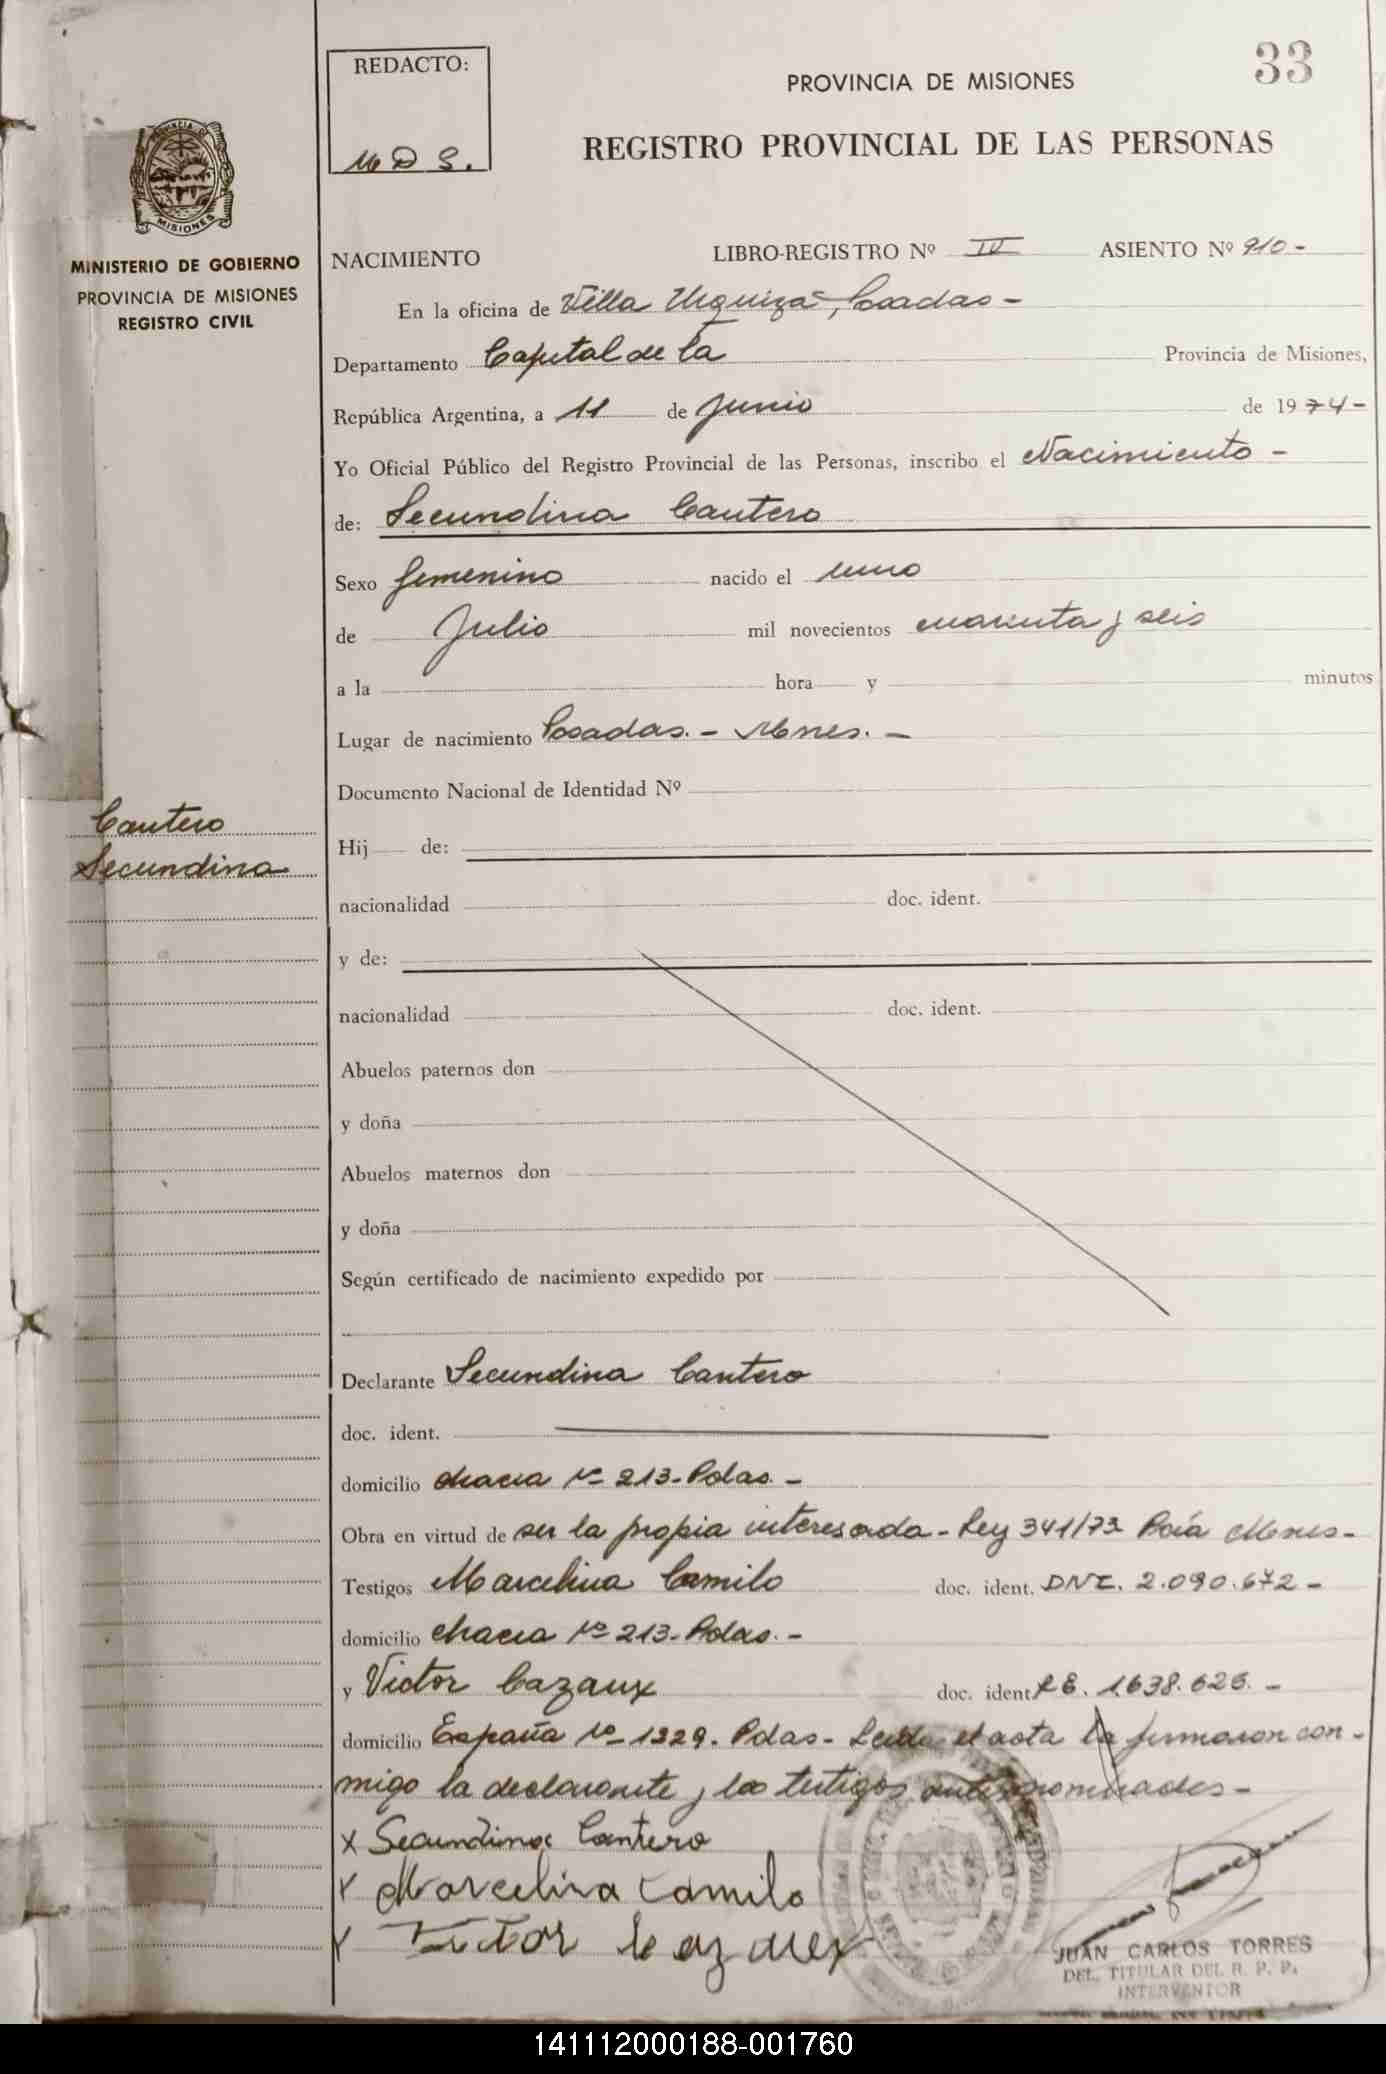 33
REDACTO:
M D S.
PROVINCIA DE MISIONES
REGISTRO PROVINCIAL DE LAS PERSONAS
PROVINCIA DE
MISIONES
MINISTERIO DE GOBIERNO
PROVINCIA DE MISIONES
REGISTRO CIVIL
NACIMIENTO LIBRO-REGISTRO Nº IV ASIENTO Nº 910-
En la oficina de Villa Urquiza, Posadas -
Departamento Capital de la Provincia de Misiones,
República Argentina, a 11 de Junio de 1974-
Yo Oficial Público del Registro Provincial de las Personas, inscribo el Nacimiento -
de: Secundina Cantero
Sexo femenino nacido el uno
de Julio mil novecientos cuarenta y seis
a la hora y minutos
Lugar de nacimiento Posadas. - Mnes. -
Documento Nacional de Identidad Nº
Cantero
Secundina
Hij de:
nacionalidad doc. ident.
y de:
nacionalidad doc. ident.
Abuelos paternos don
y doña
Abuelos maternos don
y doña
Según certificado de nacimiento expedido por
Declarante Secundina Cantero
doc. ident.
domicilio chacra Nº 213-Pdas. -
Obra en virtud de ser la propia interesada - Ley 341/73 Pcia Mnes-
Testigos Marcelina Camilo doc. ident. DNI. 2.090.672-
domicilio chacra Nº 213-Pdas. -
y Victor Cazaux doc. ident LE. 1.638.626. -
domicilio España Nº 1329. Pdas- Leida el acta la firmaron con-
migo la declarante y los testigos antes nombrados-
x Secundina Cantero
x Marcelina Camilo
x Victor Cazaux
JUAN CARLOS TORRES
DEL. TITULAR DEL R. P. P.
INTERVENTOR
141112000188-001760